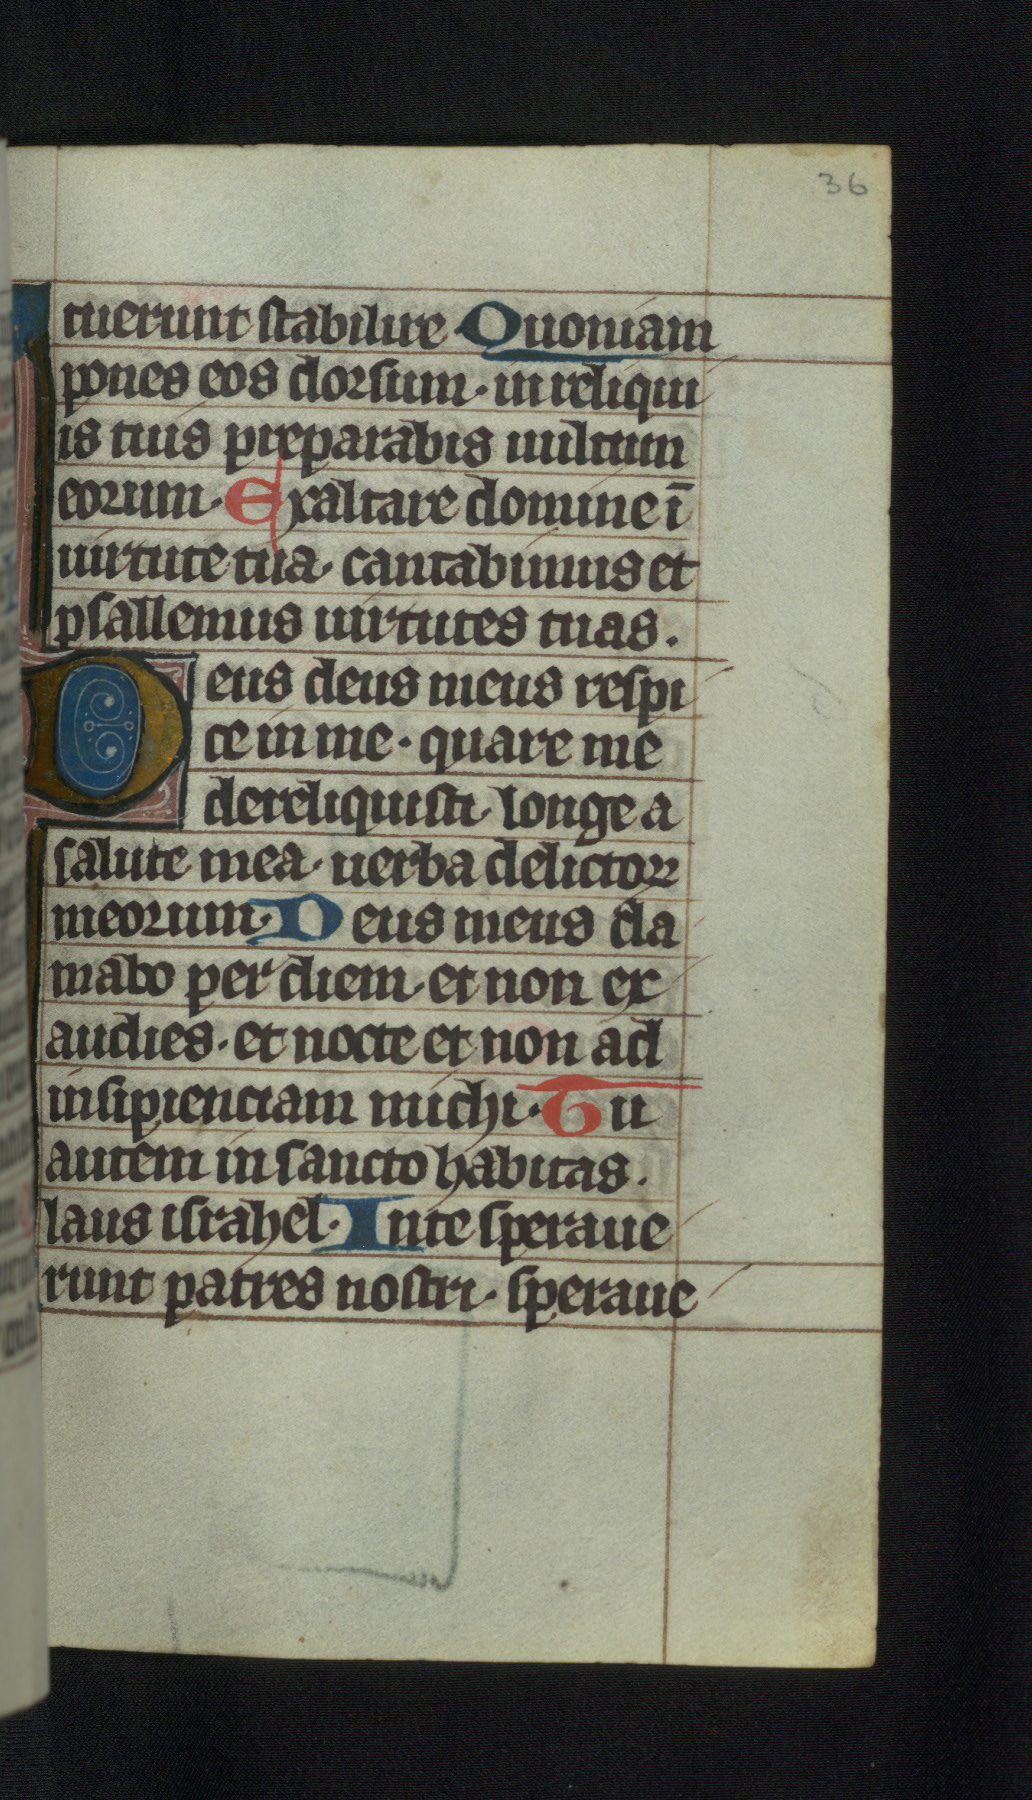 36
tuerunt stabilire. Quoniam
pones eos dorsum. in reliqui
is tuis preparabis uultum
eorum. Exaltare domine ī
uirtute tua. cantabimus et
psallemus uirtutes tuas.
Deus deus meus respi
ce in me. quare me
dereliquisti. longe a
salute mea. uerba delictoꝝ
meorum. Deus meus cla
mabo per diem. et non ex
audies. et nocte et non ad
insipienciam michi. Tu
autem in sancto habitas.
laus israhel. Inte speraue
runt patres nostri. speraue